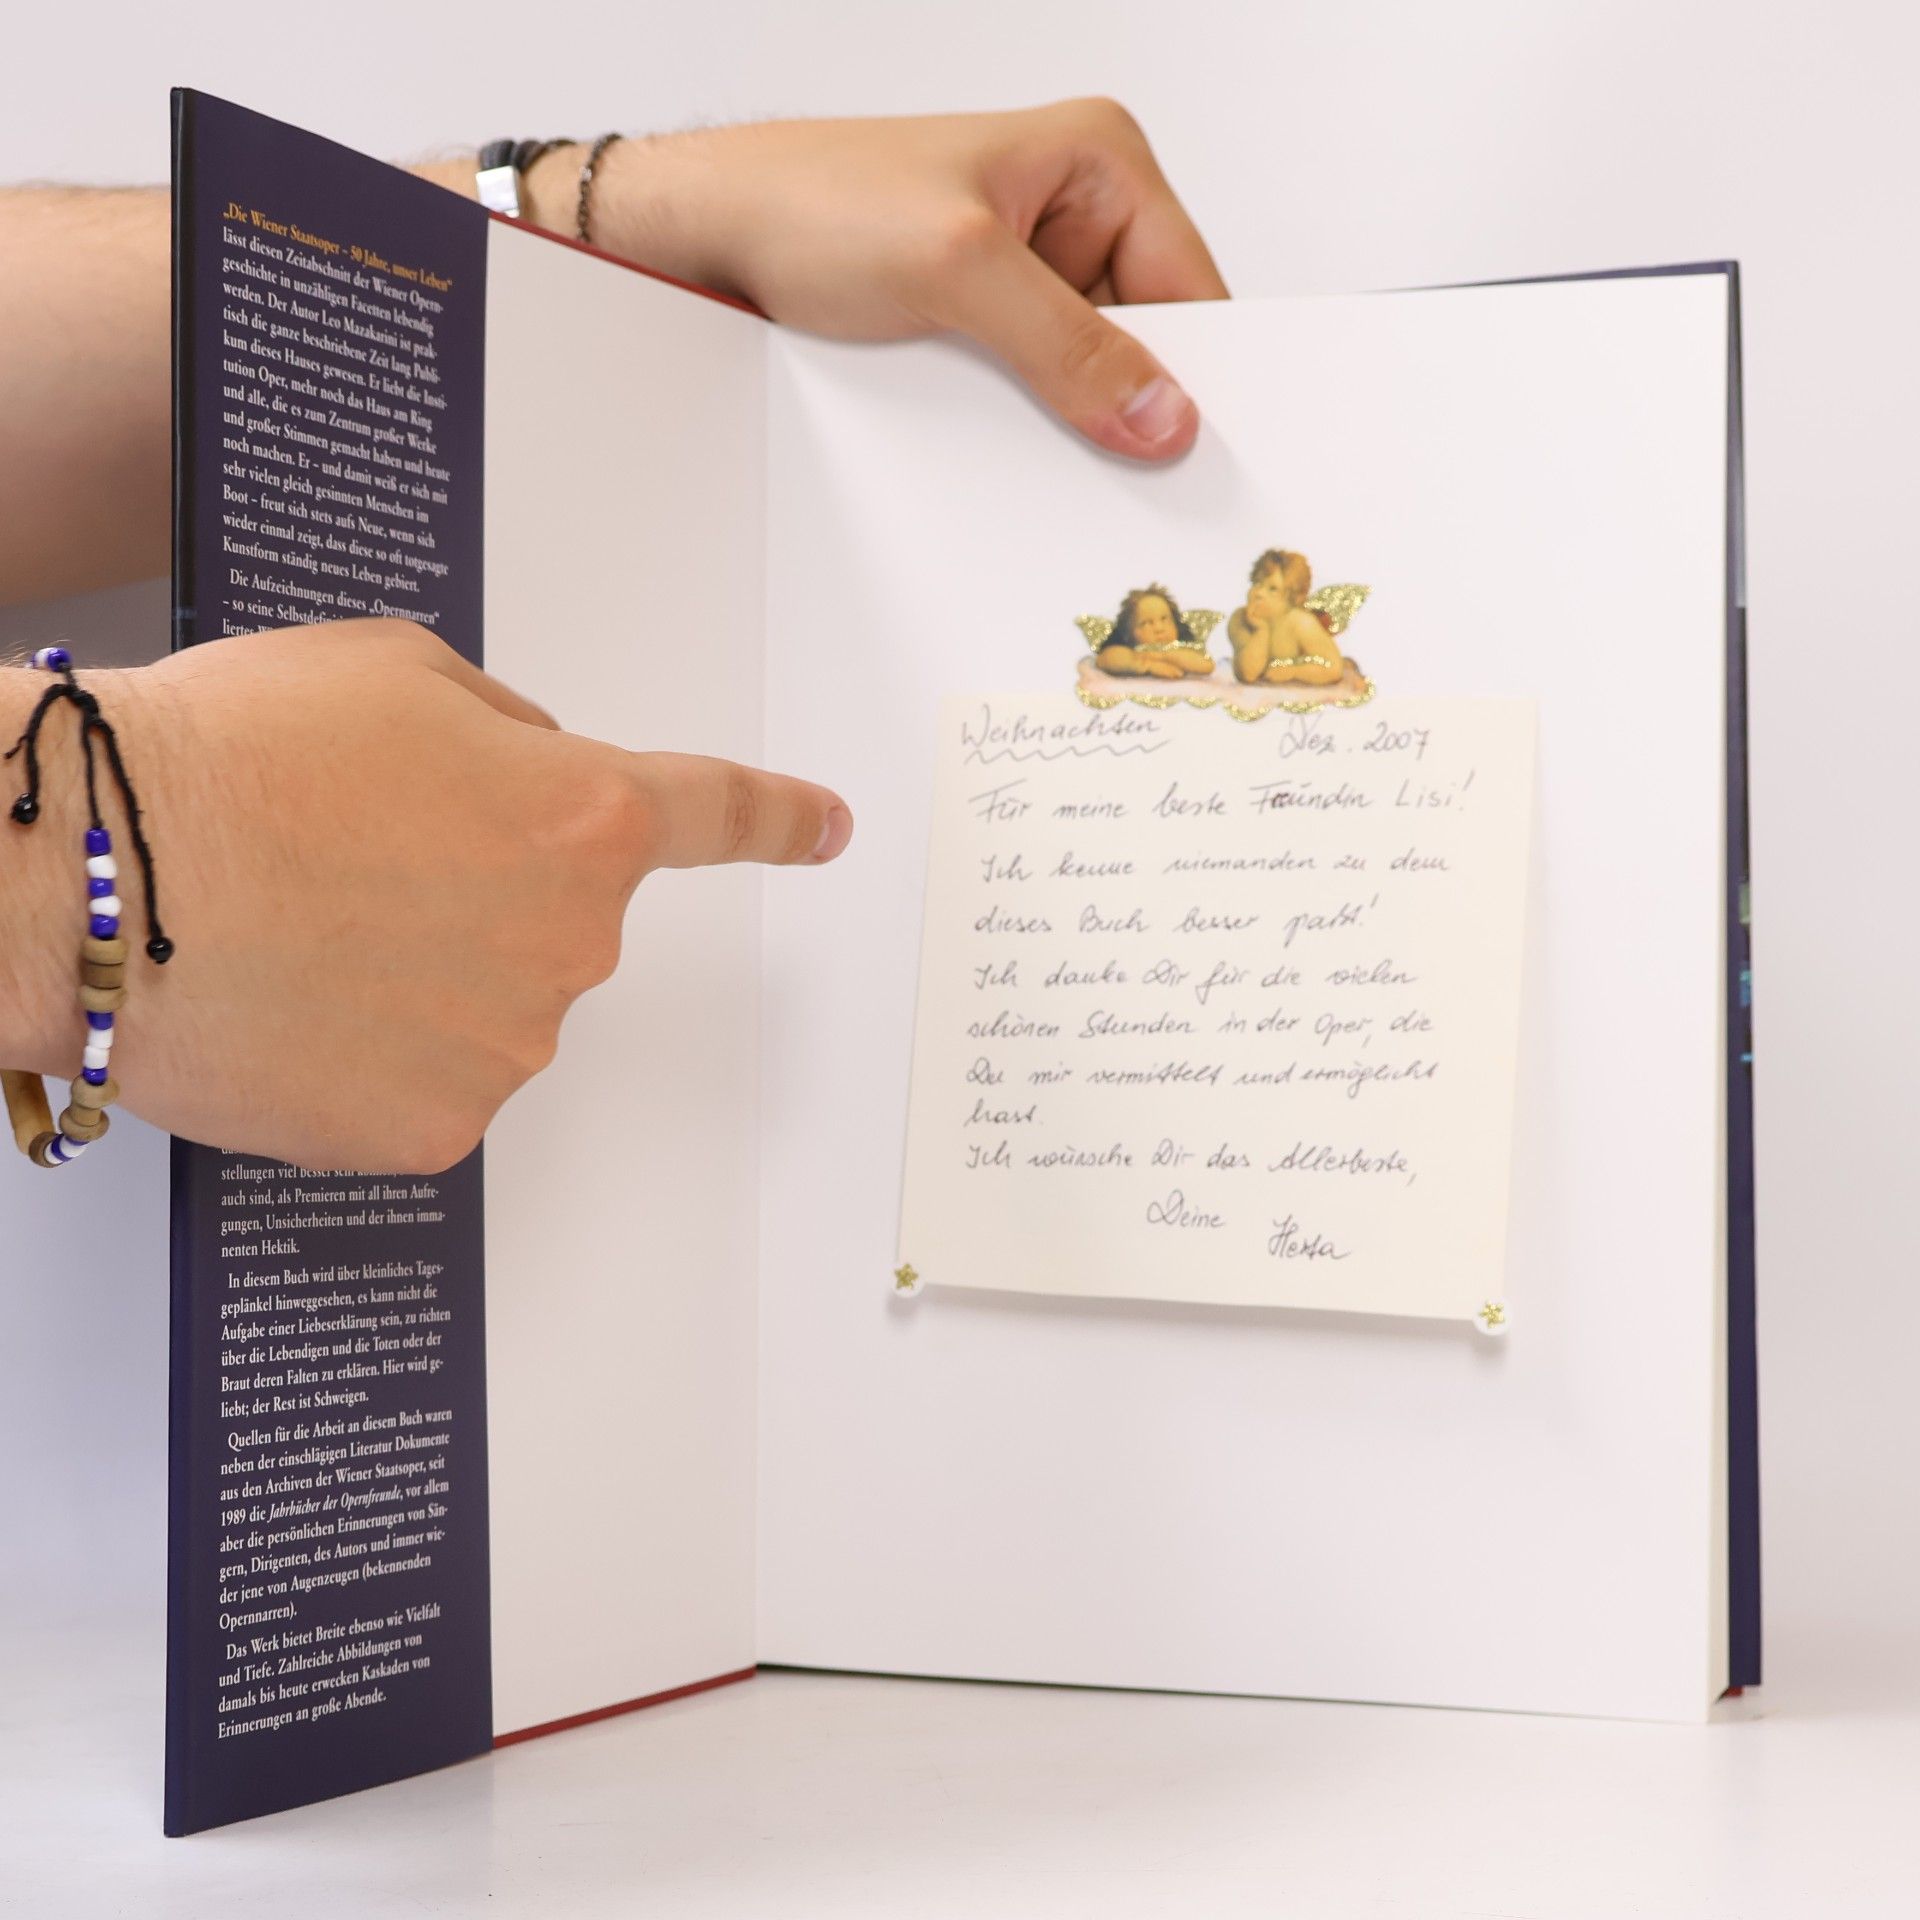 „Die Wiener Staatsoper – 50 Jahre, unser Leben“
lässt diesen Zeitabschnitt der Wiener Opern-
geschichte in unzähligen Facetten lebendig
werden. Der Autor Leo Mazakarini ist prak-
tisch die ganze beschriebene Zeit lang Publi-
kum dieses Hauses gewesen. Er liebt die Insti-
tution Oper, mehr noch das Haus am Ring
und alle, die es zum Zentrum großer Werke
und großer Stimmen gemacht haben und heute
noch machen. Er – und damit weiß er sich mit
sehr vielen gleich gesinnten Menschen im
Boot – freut sich stets aufs Neue, wenn sich
wieder einmal zeigt, dass diese so oft totgesagte
Kunstform ständig neues Leben gebiert.
Die Aufzeichnungen dieses „Opernnarren“
– so seine
stellungen viel besser sein
auch sind, als Premieren mit all ihren Aufre-
gungen, Unsicherheiten und der ihnen imma-
nenten Hektik.
In diesem Buch wird über kleinliches Tages-
geplänkel hinweggesehen, es kann nicht die
Aufgabe einer Liebeserklärung sein, zu richten
über die Lebendigen und die Toten oder der
Braut deren Falten zu erklären. Hier wird ge-
liebt; der Rest ist Schweigen.
Quellen für die Arbeit an diesem Buch waren
neben der einschlägigen Literatur Dokumente
aus den Archiven der Wiener Staatsoper, seit
1989 die Jahrbücher der Opernfreunde, vor allem
aber die persönlichen Erinnerungen von Sän-
gern, Dirigenten, des Autors und immer wie-
der jene von Augenzeugen (bekennenden
Opernnarren).
Das Werk bietet Breite ebenso wie Vielfalt
und Tiefe. Zahlreiche Abbildungen von
damals bis heute erwecken Kaskaden von
Erinnerungen an große Abende.
Weihnachten Dez. 2007
Für meine beste Freundin Lisi!
Ich kenne niemanden zu dem
dieses Buch besser paßt!
Ich danke Dir für die vielen
schönen Stunden in der Oper, die
Du mir vermittelt und ermöglicht
hast.
Ich wünsche Dir das Allerbeste,
Deine
Herta